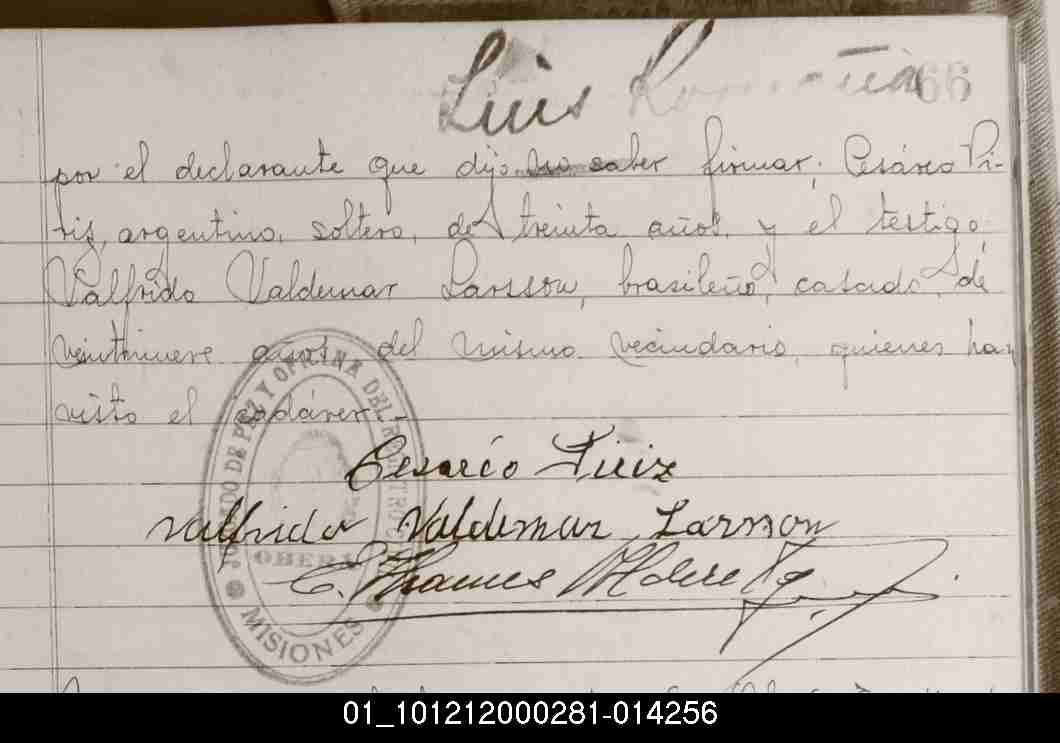 Luis
66
por el declarante que dijo no saber firmar; Cesáreo Pi-
riz, argentino, soltero, de treinta años, y el testigo,
Valfrido Valdemar Larsson, brasileño, casado, de
veintinueve años, del mismo vecindario, quienes han
visto el cadáver.-
Cesareo Piriz
Valfrido Valdemar Larsson
JUZGADO DE PAZ Y OFICINA DEL REGISTRO
OBERA
MISIONES
01_101212000281-014256